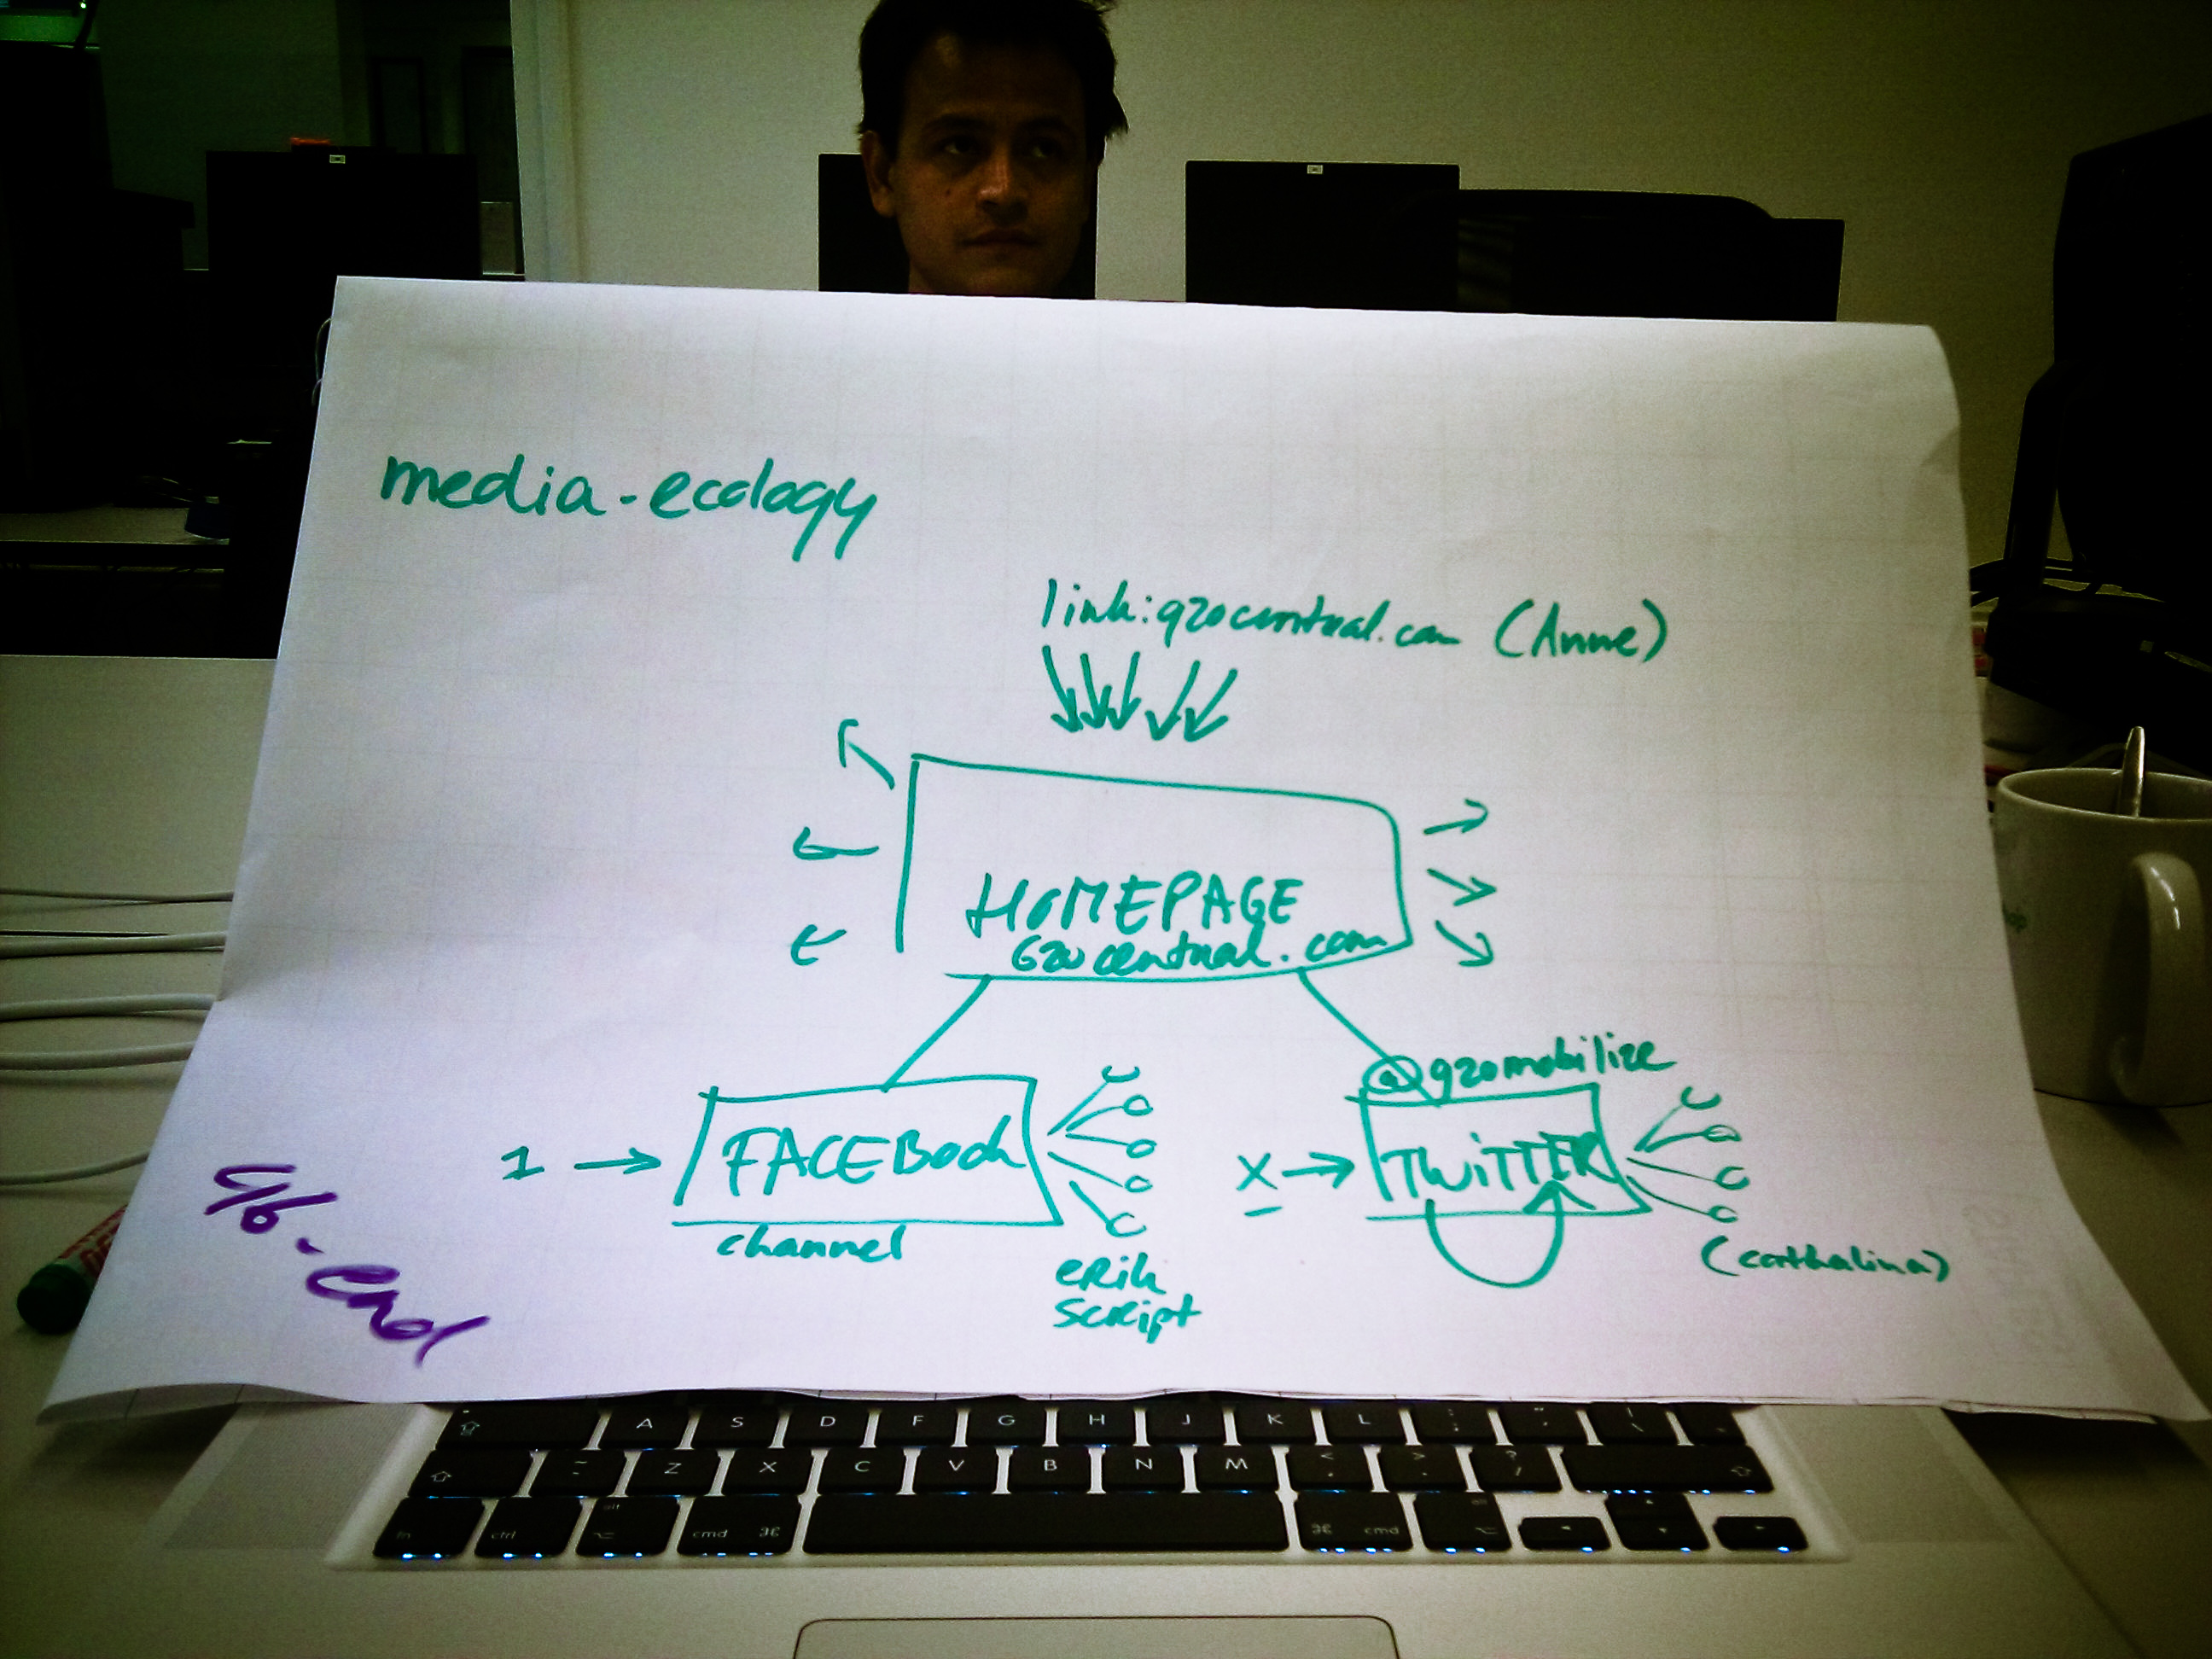 media-ecology
link:g20central.com (Anne)
HOMEPAGE
G20central.com
@g20mobilize
1 → FACEBOOk
channel
erik
script
X → TWiTTER
(catthalina)
end
A S D F G H J K L
Z X C V B N M
fn ctrl alt cmd ⌘ ⌘ cmd alt